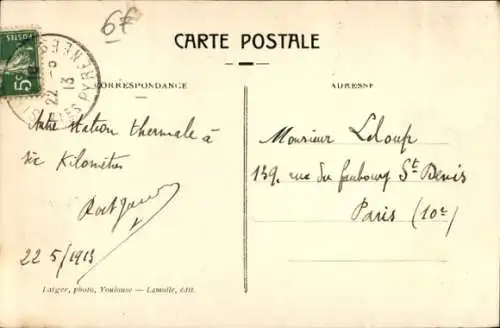 6F
CARTE POSTALE
CORRESPONDANCE
ADRESSE
POSTES
5c
22 - 5
13
Autre station thermale à
Kilomètres
22 5/1913
Monsieur Leloup
139. rue du faubourg St Denis
Paris (10e)
Latger, photo, Toulouse — Lamolle, édit.